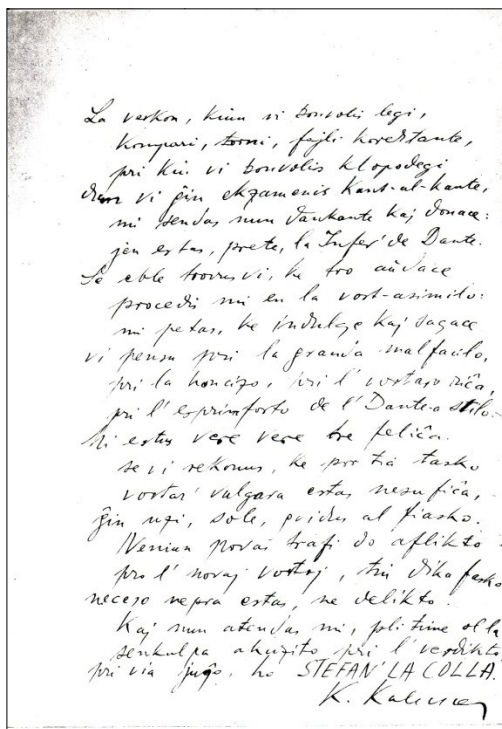 La verkon, kiun vi bonvolis legi,
kompari, torni, fajli korektante,
pri kiu vi bonvolis klopodegi
dum vi ĝin ekzamenis kant-al-kante,
mi sendas nun dankante kaj donace:
jen estas, prete, la Infer' de Dante.
Se eble trovus vi, ke tro aŭdace
procedis mi en la vort-asimilo:
mi petas, ke indulge kaj sagace
vi pensu pri la granda malfacilo,
pri la koncizo, pri l' vortaro riĉa,
pri l' esprimforto de l' Dante-a stilo.-
Mi estus vere vere tre feliĉa
se vi rekonus, ke por tia tasko
vortar' vulgara estas nesufiĉa,
ĝin uzi, sole, gvidus al fiasko.
Neniun povas trafi do aflikto
pro l' novaj vortoj, tiu dika fasko
neceso nepra estas, ne delikto.
Kaj nun atendas mi, pli time ol la
senkulpa akuzito pri l' verdikto
pri via juĝo, ho STEFAN' LA COLLA.
K. Kalocsay